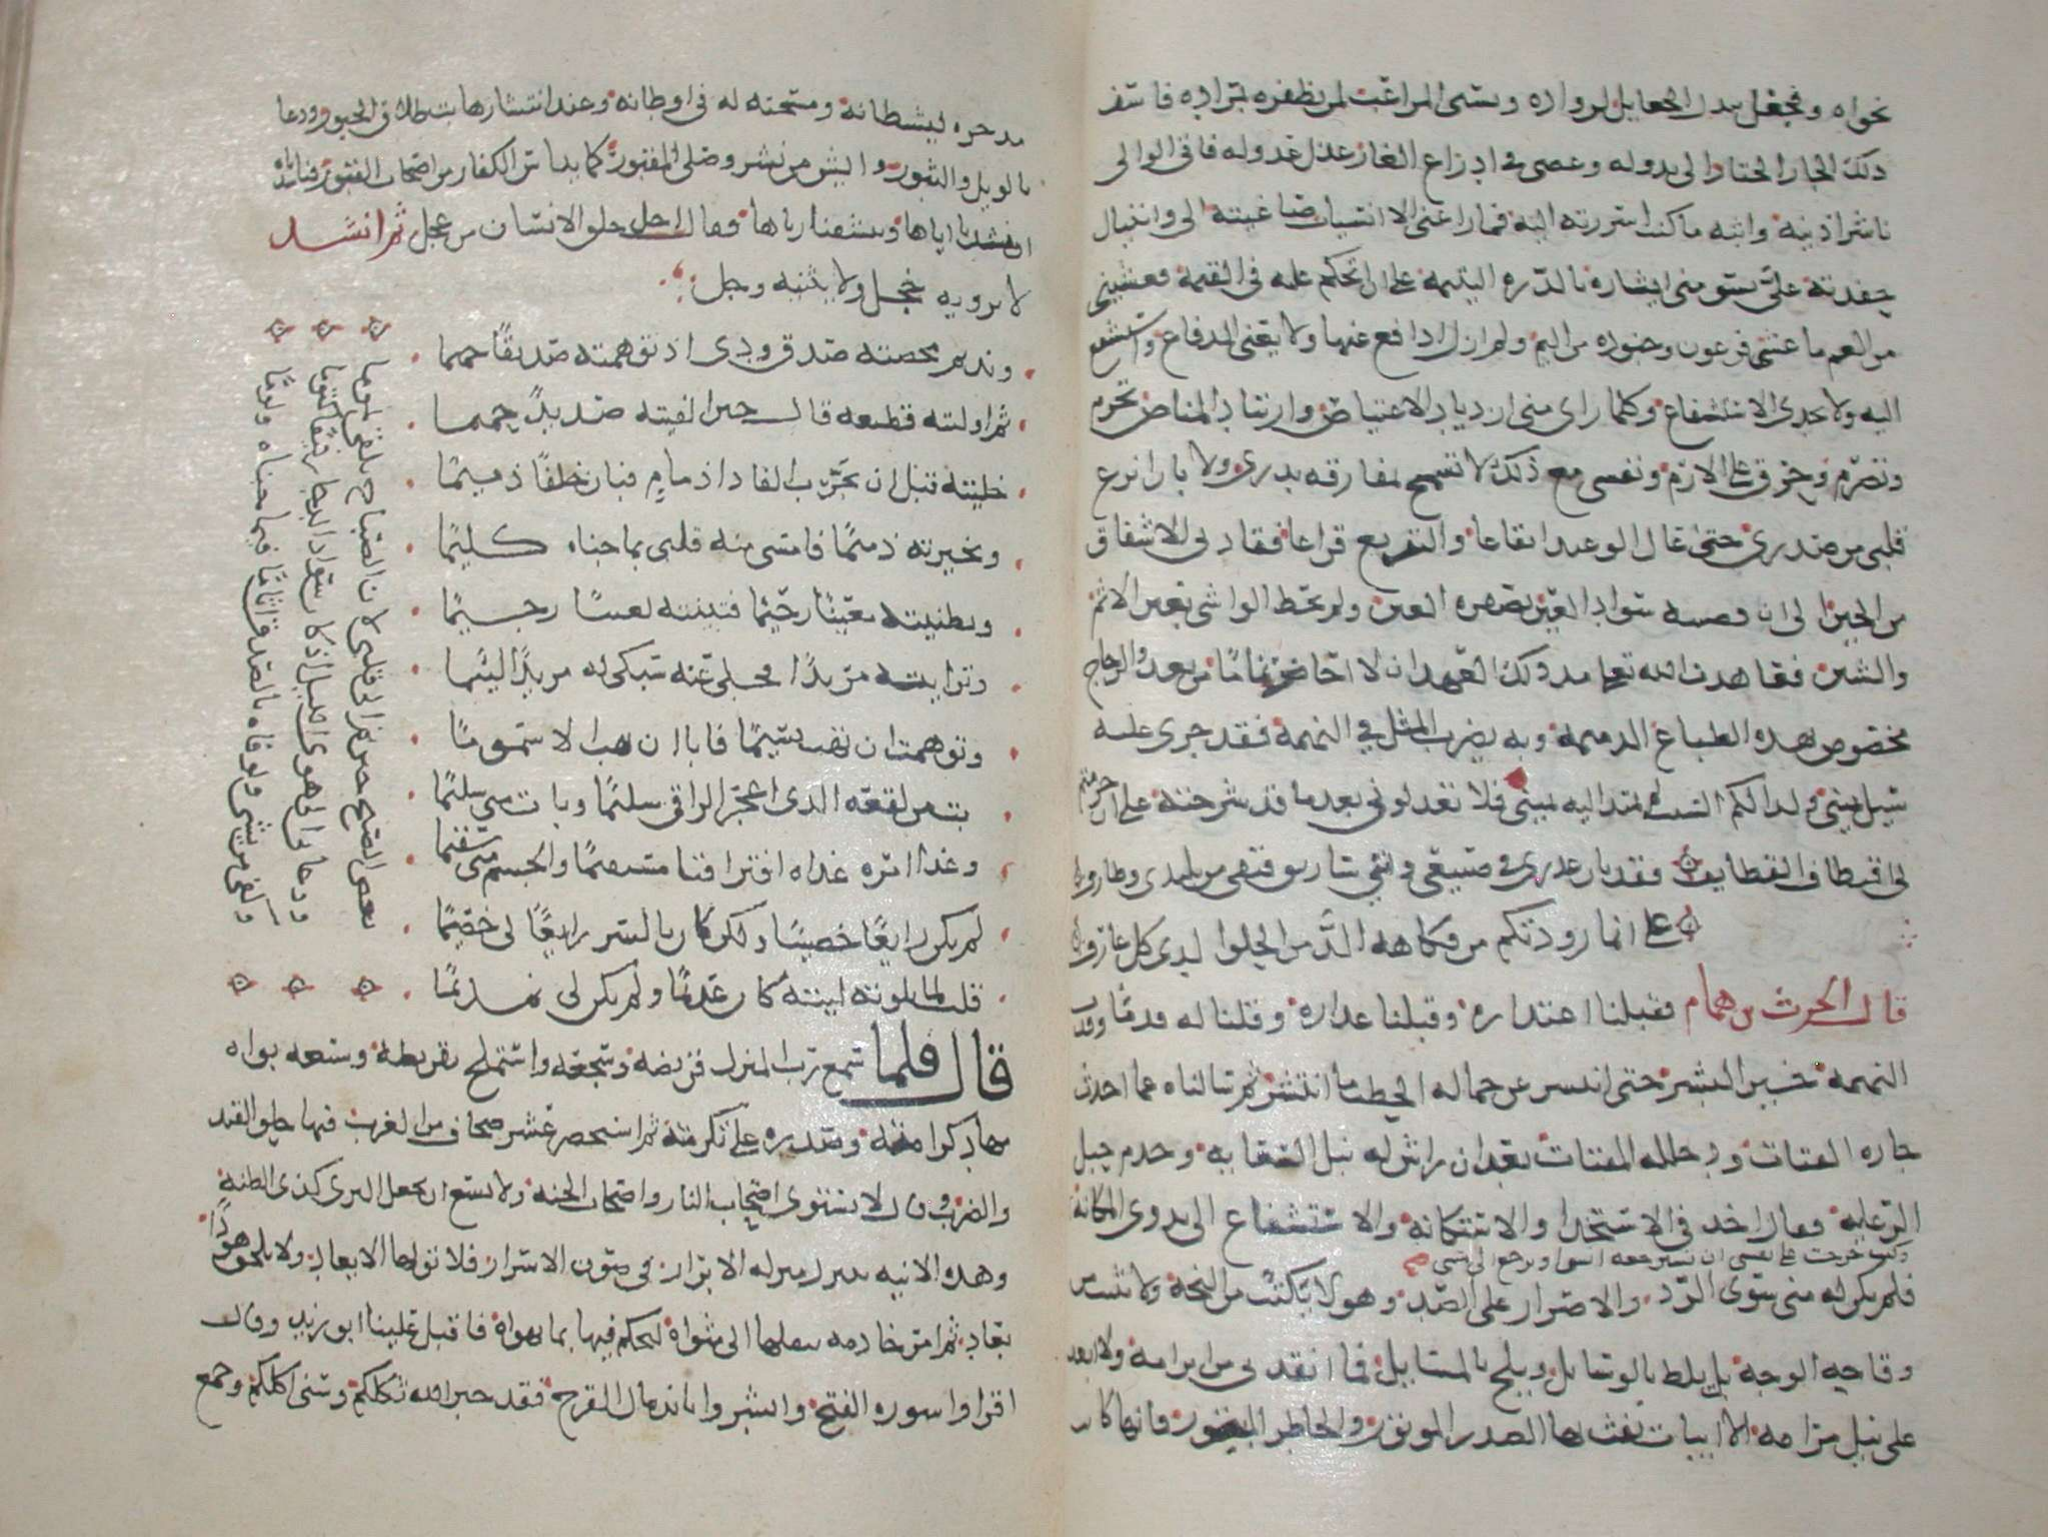 نجواه ويجعل بذل الجعايل لرواده ويسنى المراغب لمن يظفره بمراده فاسف
ذلك الجار الختار الى بدوله وعصى في ادراع العار عذل عذوله فاتى الوالى
ناشرا اذنيه وابثه ما كنت اسررته اليه فما راعنى الا انسياب صاغيته الى وانثيال
حفدته على يسومنى ايثاره بالدره اليتيمه على ان اتحكم عليه فى القيمه فغشينى
من الهم ما غشى فرعون وجنوده من اليم ولم ازل ادافع عنها ولا يغنى الدفاع واستشفع
اليه ولا يجدى الاستشفاع وكلما راى منى ازدياد الاعتياص وارتياد المناص تجرم
وتضرم وحرق على الارم ونفسى مع ذلك لا تسمح بمفارقه بدرى ولا بان انزع
قلبى من صدرى حتى آل الوعيد ايقاعا والتقريع قراعا فقادنى الاشفاق
من الحين الى ان قضته سواد العين بصفره العين ولم يحظ الواشى بغير الاثم
والشين فعاهدت الله تعالى مذ ذلك العهد ان لا احاضر نماما من بعد والزجاج
مخصوص بهذه الطباع الذميمه وبه يضرب المثل في النميمه فقد جرى عليه
سيل يمينى ولذالكم السبب لم تمتد اليه يمينى فلا تعذلونى بعد ما قد شرحته على ان حرمتم
بى اقتطاف القطايف فقد بان عذرى في صنيعى واننى سارتق فتقى من تليدى وطارفى
على ان ما زودتكم من فكاهه الذ من الحلوا لدى كل عارف
قال الحرث بن همام فقبلنا اعتذاره وقبلنا عذاره وقلنا له قدما وقذت
النميمه خير البشر حتى انتشر عن حماله الحطب ما انتشر ثم سالناه عما احدث
جاره القتات ودخلله المفتات بعد ان راش له نبل السعايه وجذم حبل
الرعايه فقال اخذ فى الاستخذا والاستكانه والاستشفاع الى بذوى المكانه
وكنت حرجت على نفسى ان لا يسترجعه انسى او يرجع الى امسى
فلم يكن له منى سوى الرد والاصرار على الصد وهو لا يكتئب من النجه ولا يتئب من
وقاحه الوجه بل يلط بالوسايل ويلح بالمسايل فما انقذنى من ابرامه ولا ابعد
على نيل مرامه الا ابيات نفث بها الصدر الموتور والخاطر المبتور فانها كانت
مدحره لشيطانه ومسجنه له فى اوطانه وعند انتشارها بت طلاق الحبور ودعا
بالويل والثبور وايس من نشر وصلى المقبور كما يئس الكفار من اصحاب القبور فناشدناه
ان ينشدنا اياها وينشقنا رياها فقال اجل خلق الانسان من عجل ثم انشد
لا يزويه خجل ولا يثنيه وجل
ونديم محضته صدق ودى اذ توهمته صديقا حميما
ثم اوليته قطيعه قال حين الفيته صديدا حميما
خلته قبل ان يجرب الفا ذا ذمام فبان جلفا ذميما
وتخيرته كليما فامسى منه قلبى بما جناه كليما
وتظنيته معينا رحيما فتبينته لعينا رجيما
وترايته مريدا فجلى عنه سبكى له مريدا لئيما
وتوهمت ان يهب نسيما فابا ان يهب الا سموما
بت من لسعه الذى اعجز الراقى سليما وبات منى سليما
وغدا امره غداه افترقنا مستقيما والجسم منى سقيما
لم يكن رايعا خصيبا ولكن كان بالشر رايعا لى خصيما
قلت لما بلوته ليته كان عديما ولم يكن لى نديما
بغض الصبح حين نم الى قلبى لان الصباح يلفى نموما
ودعانى الى هوى الليل اذ كان سواد الدجا رقيبا كتوما
وكفى من يشى ولو فاه بالصدق اثاما فيما اتاه ولوما
قال فلما سمع رب المنزل قريضه وسجعه واستملح تقريظه وسبعه بواه
مهاد كرامته وصدره على تكرمته ثم استحضر عشر صحاف من الغرب فيها حلوا القند
والضرب وقال لا يستوى اصحاب النار واصحاب الجنه ولا يسع ان يجعل البرى كذى الظنه
وهذه الانيه تتنزل منزله الابرار فى صون الاسرار فلا تولها الابعاد ولا يلحق هودا
بعاد ثم امر خادمه بنقلها الى مثواه ليحكم فيها بما يهواه فاقبل علينا ابو زيد وقال
اقراوا سوره الفتح وابشروا باندمال القرح فقد جبر الله ثكلكم وسنى اكلكم وجمع